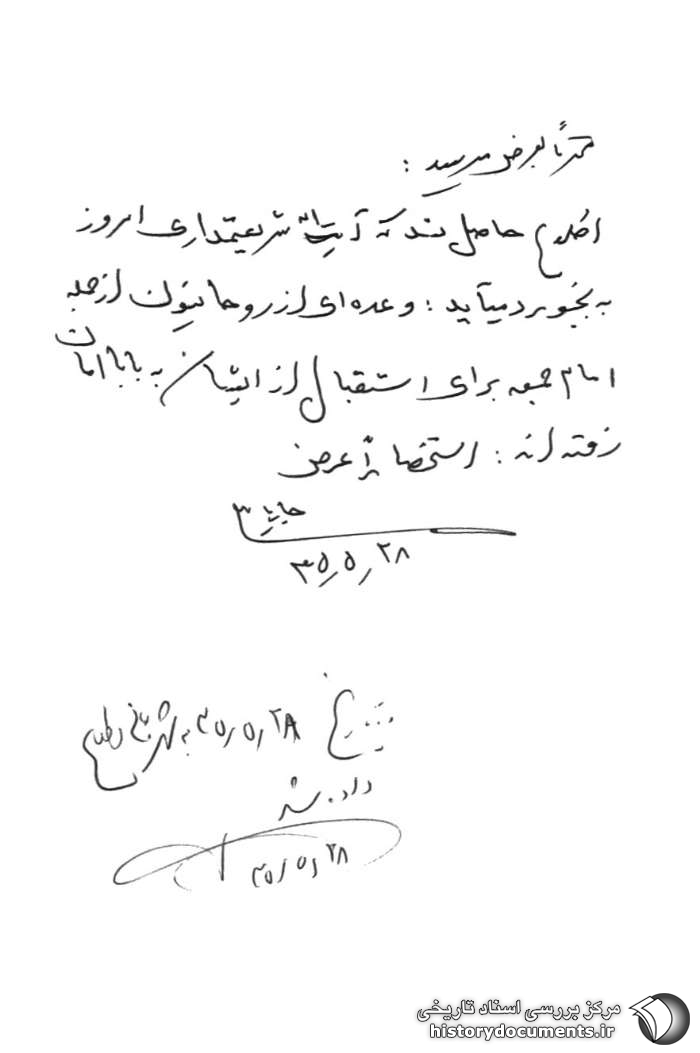 محترماً بعرض میرسید :
اطلاع حاصل شد که آیت الله شریعتمداری امروز
به بجنورد میآید : و عده ای از روحانیون از جمله
امام جمعه برای استقبال از ایشان به بابا امان
رفته اند : استحضاراً عرض
۳۵٫۵٫۲۸
بتاریخ ۳۵٫۵٫۲۸ به شهربانی اطلاع
داده شد
۳۵٫۵٫۲۸
مرکز بررسی اسناد تاریخی
historydocuments.ir